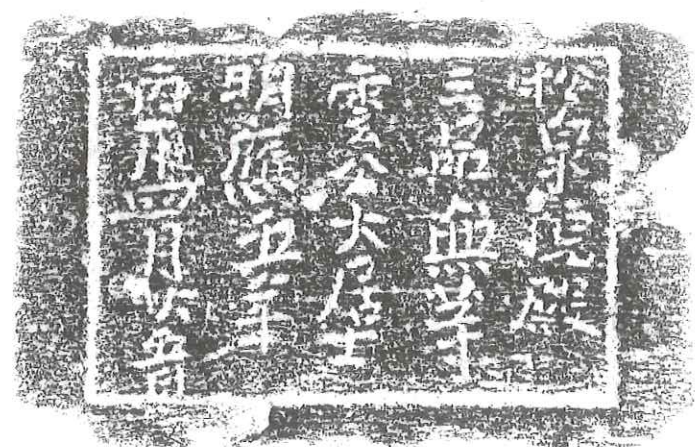 松泉院殿
三品無等
雲公大居士
明應五年
丙辰四月廿五日